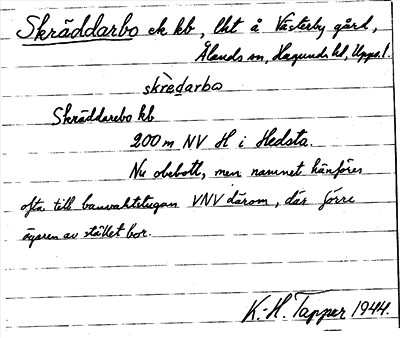 Skräddarbo ek kb, lht å Västerby gård,
Ålands sn, Hagunda hd, Upps. l.
skrèdarbo
Skräddarebo kb
200 m NV H i Hedsta.
Nu obebott, men namnet hänföres
ofta till banvaktstugan VNV därom, där förre
ägaren av stället bor.
K.-H. Tapper 1944.